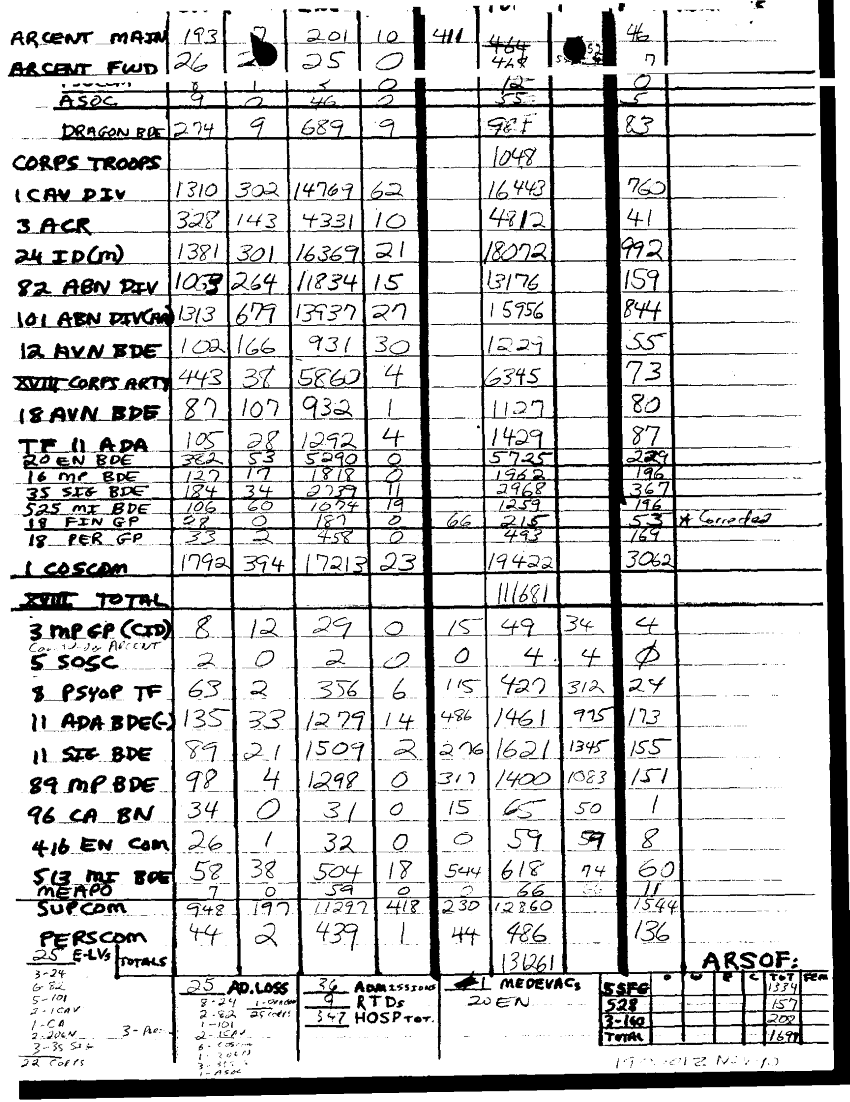 ARCENT MAIN 193 201 10 411 464 46
ARCENT FWD 26 25 0 468 7
0 12 0
ASOC 9 0 46 0 55 5
DRAGON BDE 274 9 689 9 981 83
CORPS TROOPS 1048
1 CAV DIV 1310 302 14769 62 16443 760
3 ACR 328 143 4331 10 4812 41
24 ID(M) 1381 301 16369 21 18072 992
82 ABN DIV 1063 264 11834 15 13176 159
101 ABN DIV(AA) 1313 679 13937 27 15956 844
12 AVN BDE 102 166 931 30 1229 55
XVIII CORPS ARTY 443 38 5860 4 6345 73
18 AVN BDE 87 107 932 1 1127 80
TF 11 ADA 105 28 1292 4 1429 87
20 EN BDE 382 53 5290 0 5725 229
16 MP BDE 127 17 1818 0 1962 196
35 SIG BDE 184 34 2739 11 2968 367
525 MI BDE 106 60 1074 19 1259 196
18 FIN GP 28 0 187 0 66 215 53 * Corrected
18 PER GP 33 2 458 0 493 169
1 COSCOM 1792 394 17213 23 19422 3062
XVIII TOTAL 111681
3 MP GP (CID) 8 12 29 0 15 49 34 4
5 SOSC 2 0 2 0 0 4 4 0
8 PSYOP TF 63 2 356 6 115 427 312 24
11 ADA BDE(-) 135 33 1279 14 486 1461 975 173
11 SIG BDE 89 21 1509 2 276 1621 1345 155
89 MP BDE 98 4 1298 0 317 1400 1083 151
96 CA BN 34 0 31 0 15 65 50 1
416 EN COM 26 1 32 0 0 59 59 8
513 MI BDE 58 38 504 18 544 618 74 60
MEAPO 7 0 59 0 66 11
SUPCOM 948 197 11297 418 230 12860 1544
PERSCOM 44 2 439 1 44 486 136
25 E-LVs TOTALS 131261 ARSOF:
25 AD.LOSS 36 ADMISSIONS 1 MEDEVACs O W E C TOT FEM
3-24 8-24 9 RTDs 20 EN 5SFG 1334
6-82 2-82 347 HOSP TOT. 528 157
5-101 1-101 3-160 202
2-1CAV TOTAL
1-CA
2-20EN
3-35 SIG
22 CORPS